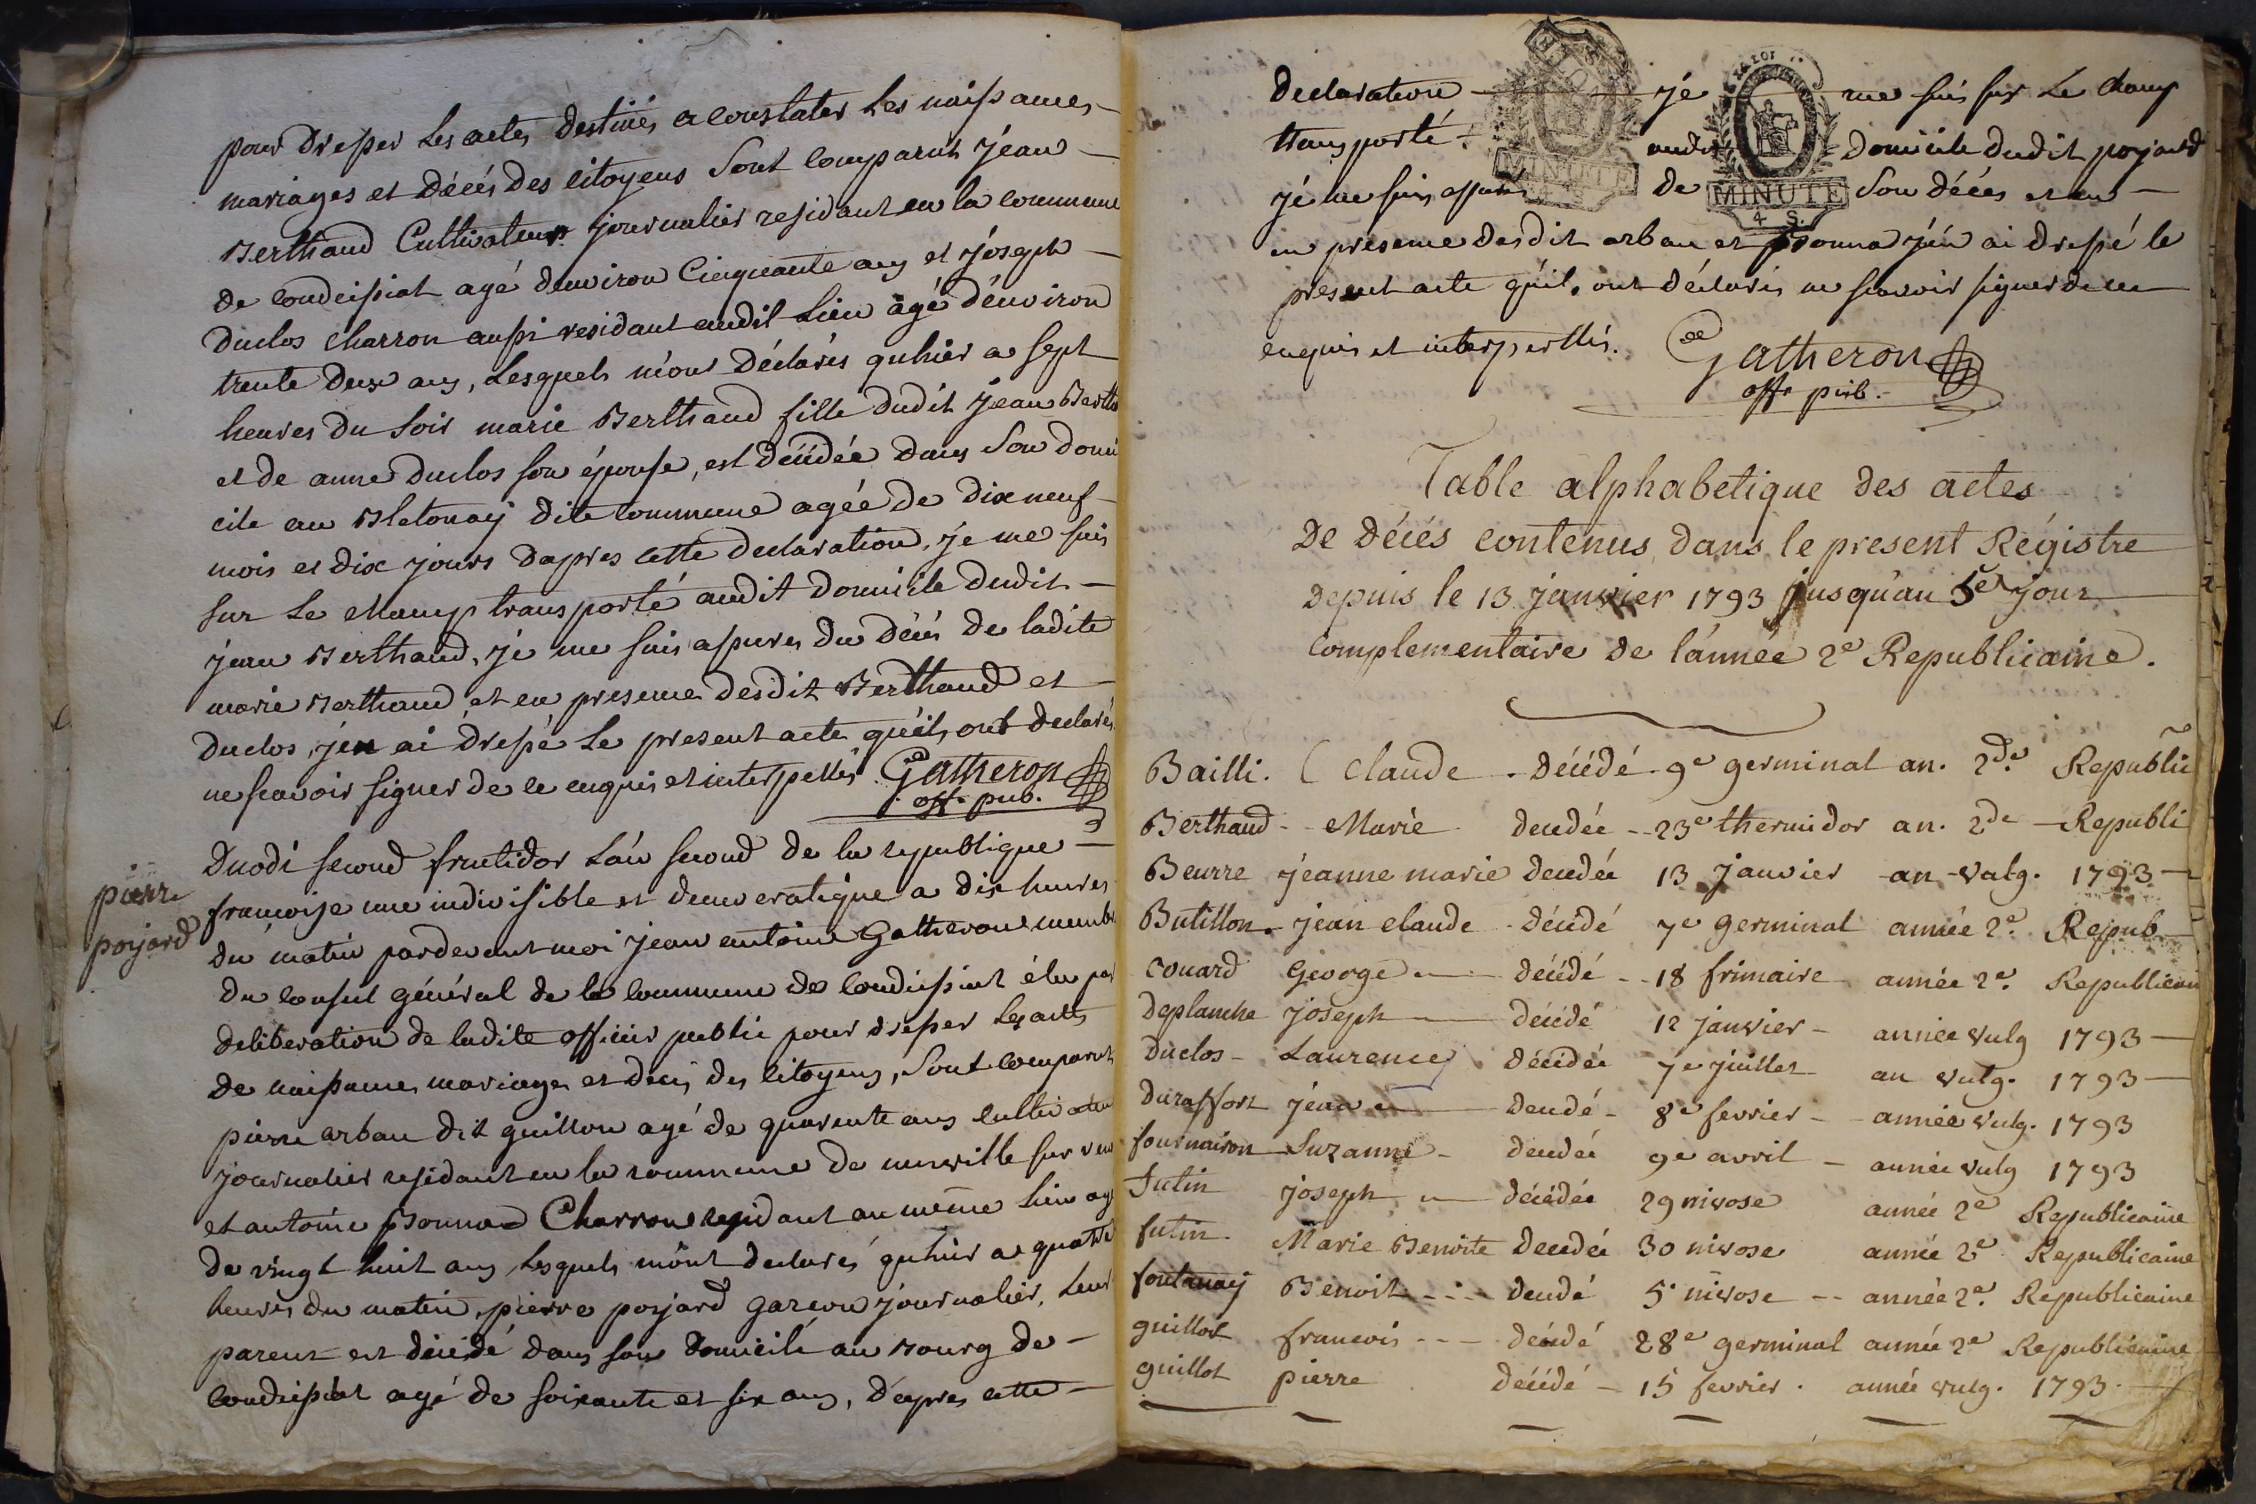 pour dresser Les actes destinés a constater Les naissances
mariages et décés des citoyens Sont comparus jéan
Berthaud Cultivateur journalier residant en la commune
de condeissiat agé denviron Cinquante ans et jóseph
Duclos charron aussi residant audit Lieu agé d'énviron
trente deux ans, Lesquels m'ont Déclarés qu'hier a sept
heures du Soir marie Berthaud fille dudit jean Berth
et de anne duclos son épouse, est décédée dans Son domi
cile au Bletonay dite commune agée de dix neuf
mois et dix jours dapres cette declaration, je me suis
sur Le champ transporté audit domicile dudit
jean Berthaud, je me suis assurés du décés de ladite
marie Berthaud, et en presence desdit Berthaud et
duclos, j'én ai dressé Le present acte qu'ils ont declarés
ne scavoir signer de ce enquis et interpellés Gatheron
off. pub.
Duodi second fructidor L'an second de la republique
francoise une indivisible et democratique a dix heures
pierre
poyard
du matin pardevant moi jean antoine Gatheron memb
du conseil général de la commune de condeissiat élu par
deliberation de ladite officier public pour dresser Les actes
de naissances mariages et decés des citoyens, Sont comparus
pierre arban dit guillon agé de quarente ans cultivateur
journalier residant en la commune de neuville sur
et antoine Bonna Charron residant au même lieu agé
de vingt huit ans Lesquels m'ont declarés qu'hier a quatre
heures du matin, pierre poyard garcon journalier, Leur
parent est décédé dans son domicile au Bourg de
condeissiat agé de soixante et six ans, d'apres cette
declaration je me suis sur Le champ
transporté audit domicile dudit poyard
jé me suis assurés de son décés et en
en presence desdit arban et Bonna j'én ai dressé le
present acte qu'ils ont déclarés ne scavoir signer de ce
enquis et interpellés. Gatheron
off. pub.
MINUTE
4 S.
MINUTE
4 S.
Table alphabetique des actes
De Décés contenus dans le present Régistre
Depuis le 13 janvier 1793 jusqu'au 5er jour
complementaire de l'année 2e Republicaine.
Bailli. Claude . Décédé 9e germinal an. 2de Republic
Berthaud - Marie decedée - 23e thermidor an. 2de Republi
Beurre jéanne marie decedée 13 janvier an vulg. 1793
Butillon jean claude décédé 7e germinal année 2e Repub
couard George décédé - 18 frimaire année 2e Republicain
Deplanche joseph décédé 12 janvier année vulg 1793
Duclos Laurence décédée 7e juillet an vulg. 1793
Duraffort jéan decedé - 8e fevrier - année vulg. 1793
fournaison Suzanne decedée 9e avril année vulg 1793
Futin joseph décédée 29 nivose année 2e Republicaine
futin. Marie Benoite decedée 30 nivose année 2e Republicaine
fontanay Benoit decedé 5. nivose année 2e. Republicaine
guillot francois décédé 28e germinal année 2e Republicaine
guillot pierre décédé 15 fevrier. année vulg. 1793.